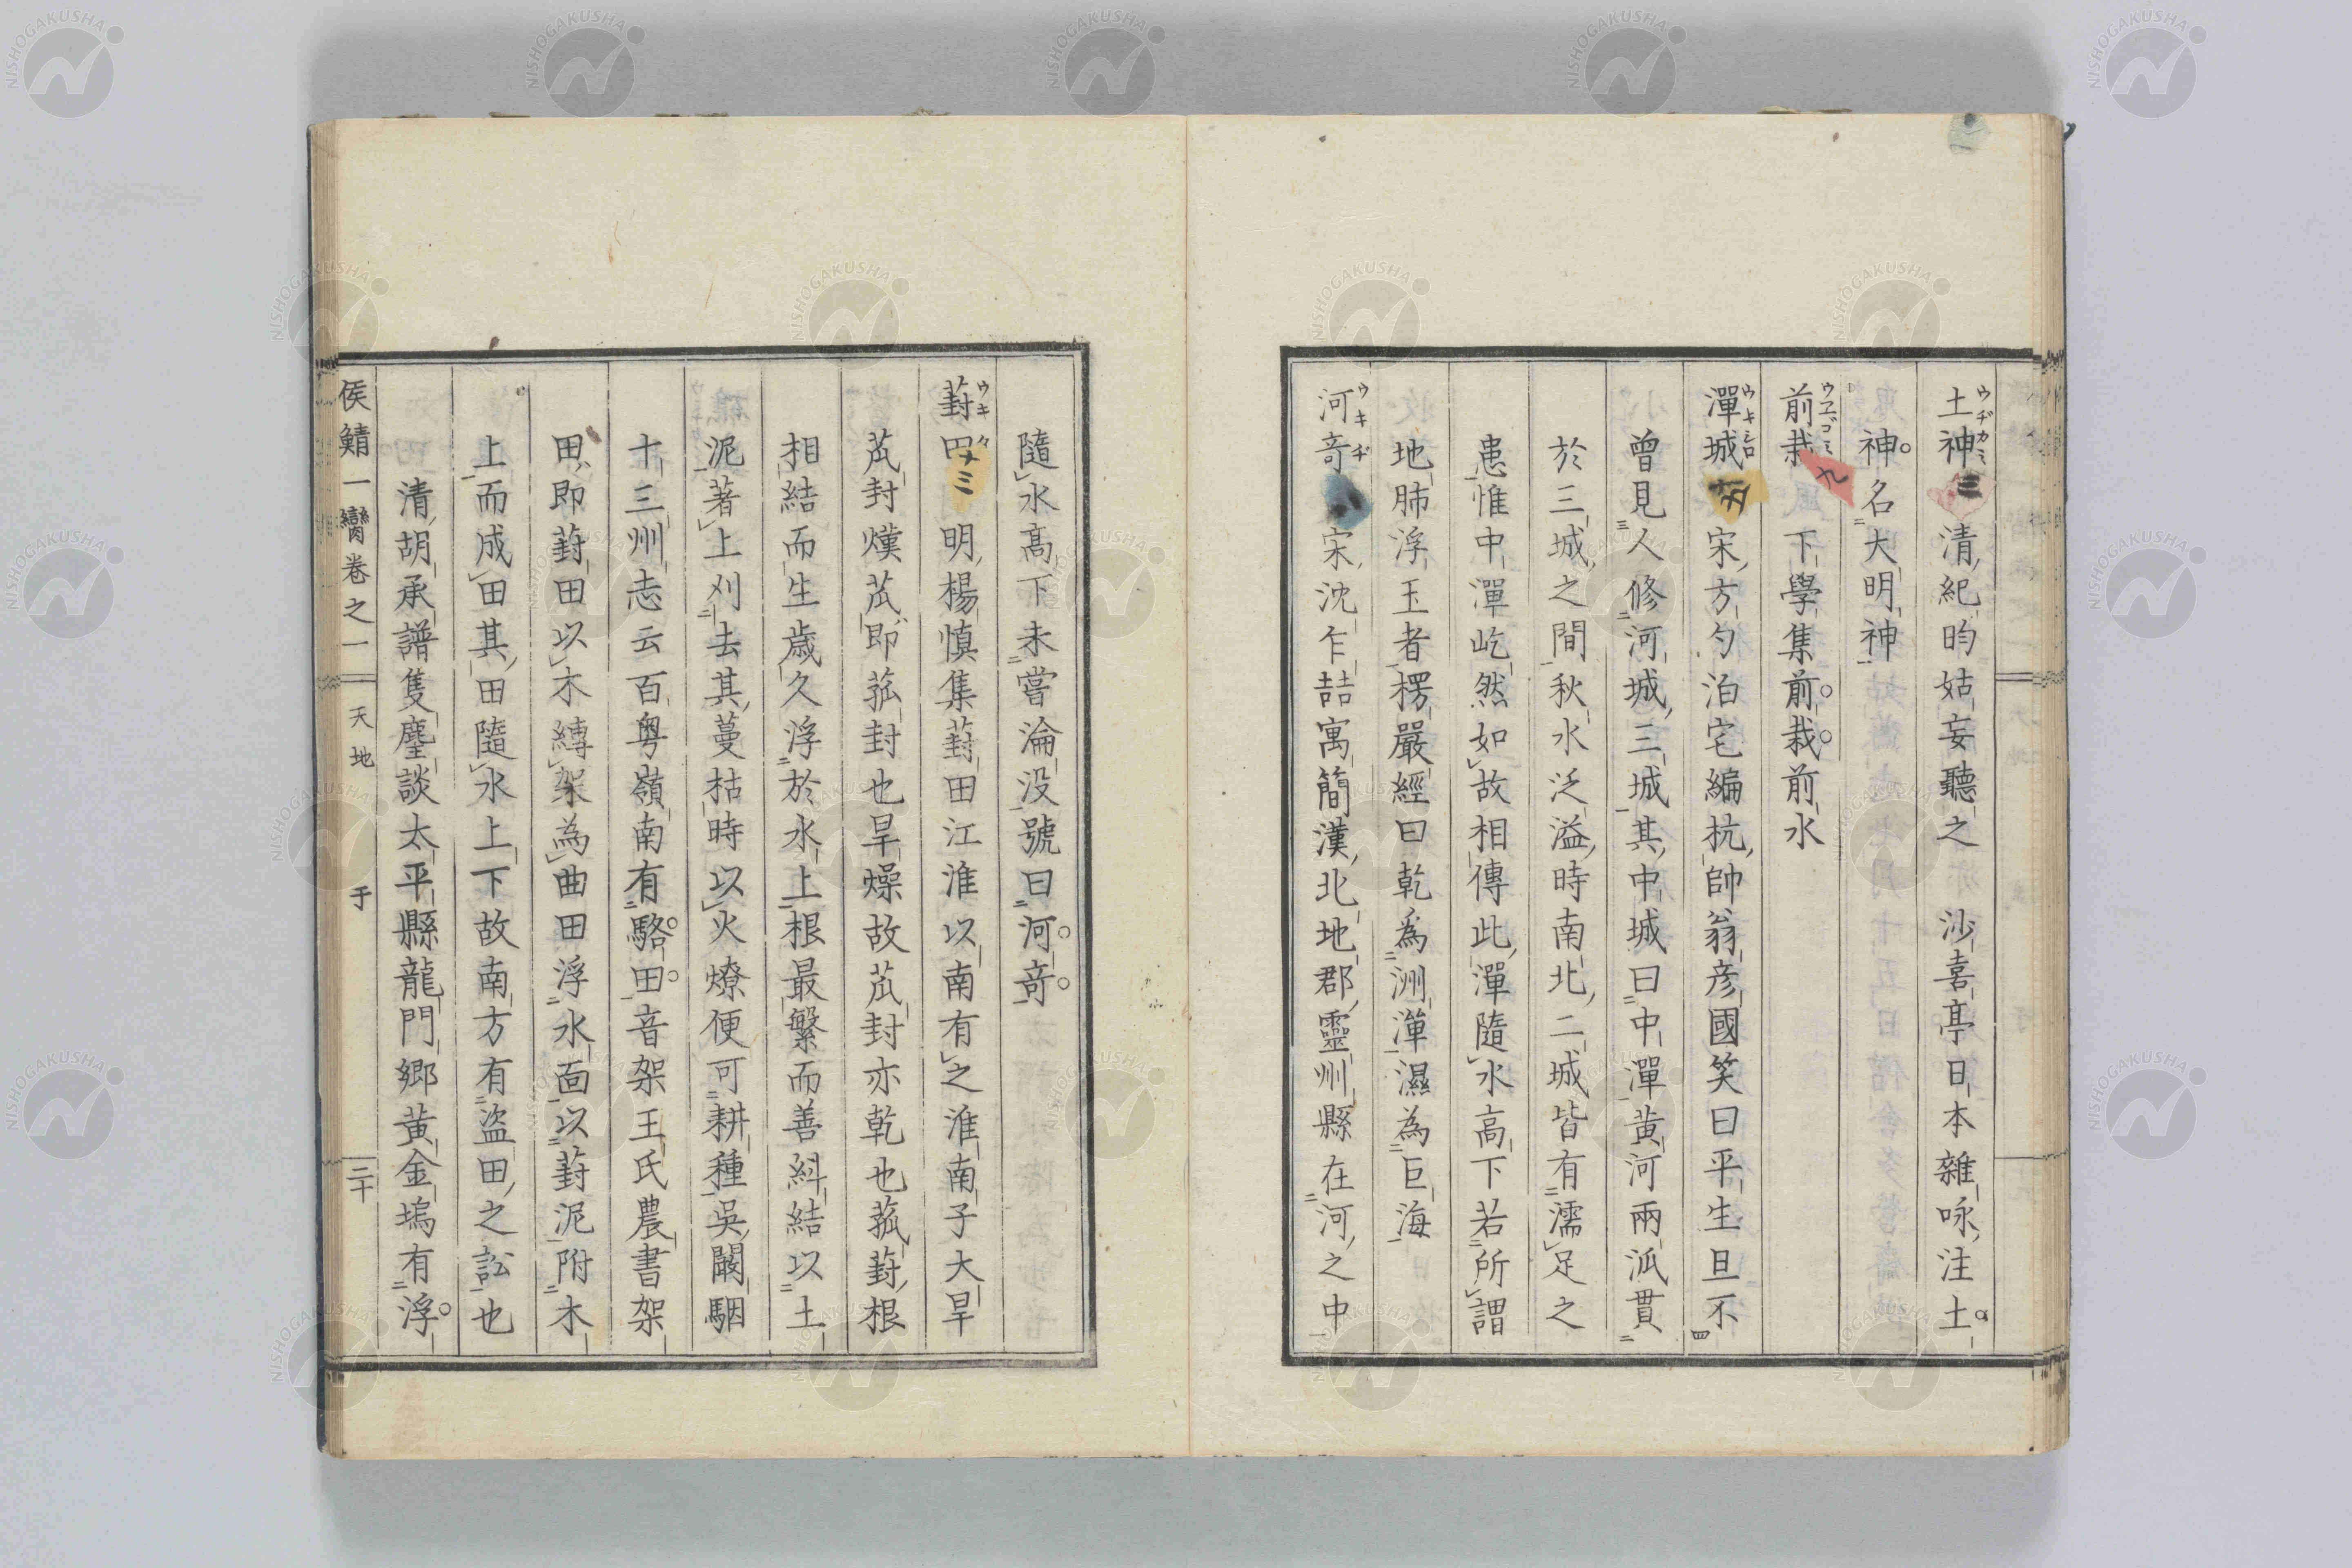 土神 清紀昀姑妄聽之 沙喜亭日本雜咏注土
神名大明神
前栽 下學集前栽前水
潬城 宋方勺泊宅編杭帥翁彦國笑曰平生旦不
曾見人修河城三城其中城曰中潬黄河兩派貫
於三城之間秋水泛溢時南北二城皆有濡足之
患惟中潬屹然如故相傳此潬隨水高下若所謂
地肺浮玉者楞嚴經曰乾爲洲潬濕為巨海
河奇 宋沈乍喆寓簡漢北地郡靈州縣在河之中
隨水高下未嘗淪没號曰河奇
葑田 明楊慎集葑田江淮以南有之淮南子大旱
苽封熯苽即菰封也旱燥故苽封亦乾也菰葑根
相結而生歳久浮於水上根最繁而善糾結以土
泥著上刈去其蔓枯時以火燎便可耕種吳闞駰
十三州志云百粤嶺南有駱田音架王氏農書架
田即葑田以木縛架為曲田浮水面以葑泥附木
上而成田其田隨水上下故南方有盗田之訟也
清胡承譜隻塵談太平縣龍門郷黄金塢有浮
侯鯖一臠卷之一 天地 于 二十